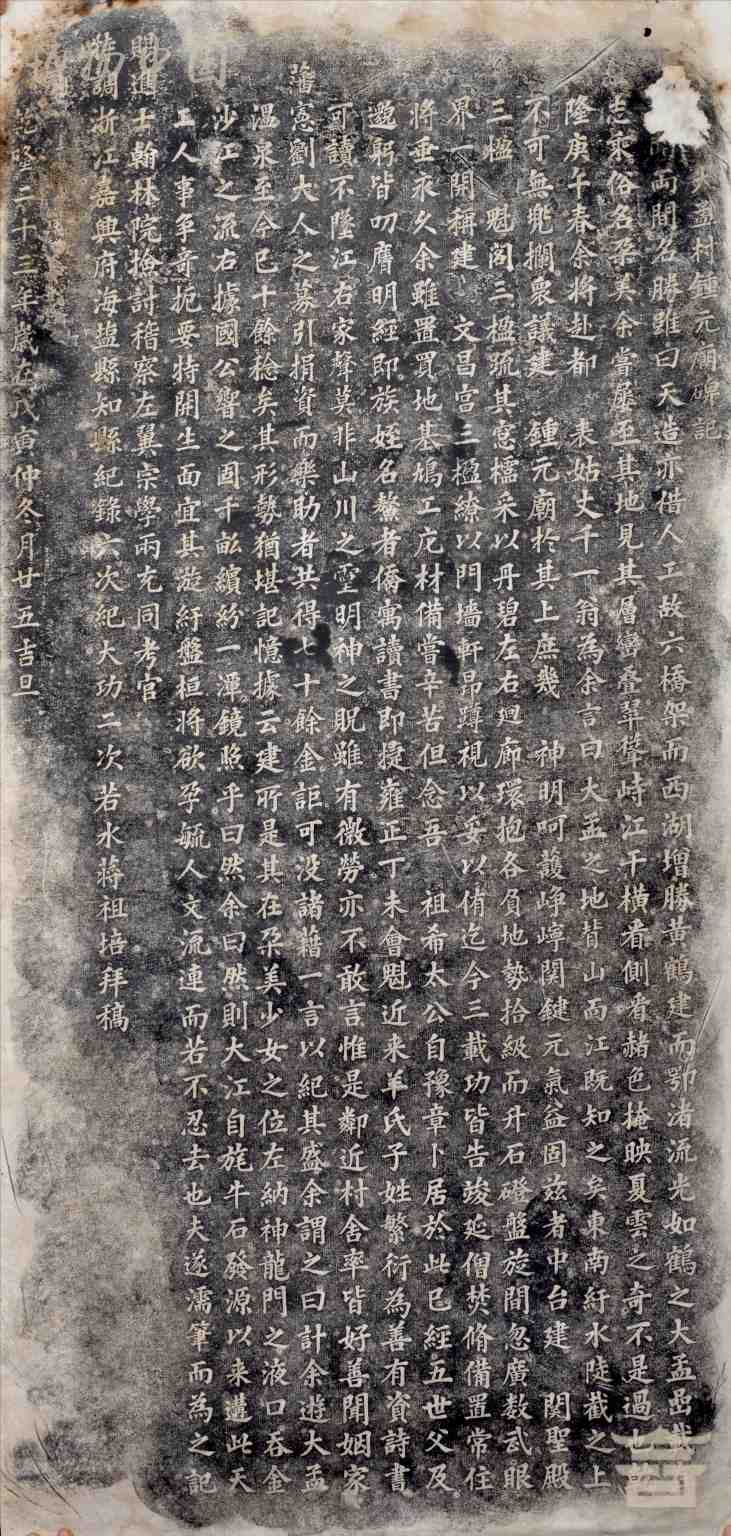 大孟村鍾元廟碑記
兩間名勝雖曰天造亦借人工故六橋架而西湖增勝黃鶴建而鄂渚流光如鶴之大孟嵒
志乘俗名朶美余嘗屢至其地見其層巒叠翠聳峙江干橫看側看赭色掩映夏雲之奇不是過也
隆庚午春余將赴都 表姑丈千一翁為余言曰大孟之地背山而江既知之矣東南紆水陡截之上
不可無兠攔衆議建 鍾元廟於其上庶幾 神明呵護崢嶸関鍵元氣益固茲者中台建 関聖殿
三楹 魁阁三楹疏其窓櫺采以丹碧左右廻廊環抱各負地勢拾級而升石磴盤旋間忽廣数武眼
界一開稱建 文昌宫三楹繚以門墻軒昂蹲視以妥以侑迄今三載功皆告竣延僧焚脩備置常住
將垂永久余雖置買地基鳩工庀材備嘗辛苦但念吾 祖希太公自豫章卜居於此已經五世父及
邀躬皆叨膺明經即族姪名鰲者僑寓讀書即㨗雍正丁未會魁近来羊氏子姓繁衍為善有資詩書
可讀不墜江右家聲莫非山川之靈明神之貺雖有微勞亦不敢言惟是鄰近村舍率皆好善聞姻家
藩憲劉大人之募引捐資而樂助者共得七十餘金詎可没諸藉一言以紀其盛余謂之曰計余逰大孟
温泉至今已十餘稔矣其形勢猶堪記憶據云建所是其在朶美少女之位左納神龍門之液口吞金
沙江之流右據國公響之固千畆繽紛一潭鏡照乎曰然余曰然則大江自旄牛石發源以来遘此天
工人事争奇扼要特開生面宜其漩紆盤桓將欲孕毓人文流連而若不忍去也夫遂濡筆而為之記
賜進士翰林院撿討稽察左翼宗學兩充同考官
浙江嘉興府海塩縣知縣紀錄六次紀大功二次若水蔣祖培拜稿
乾隆二十三年歲在戊寅仲冬月廿五吉旦